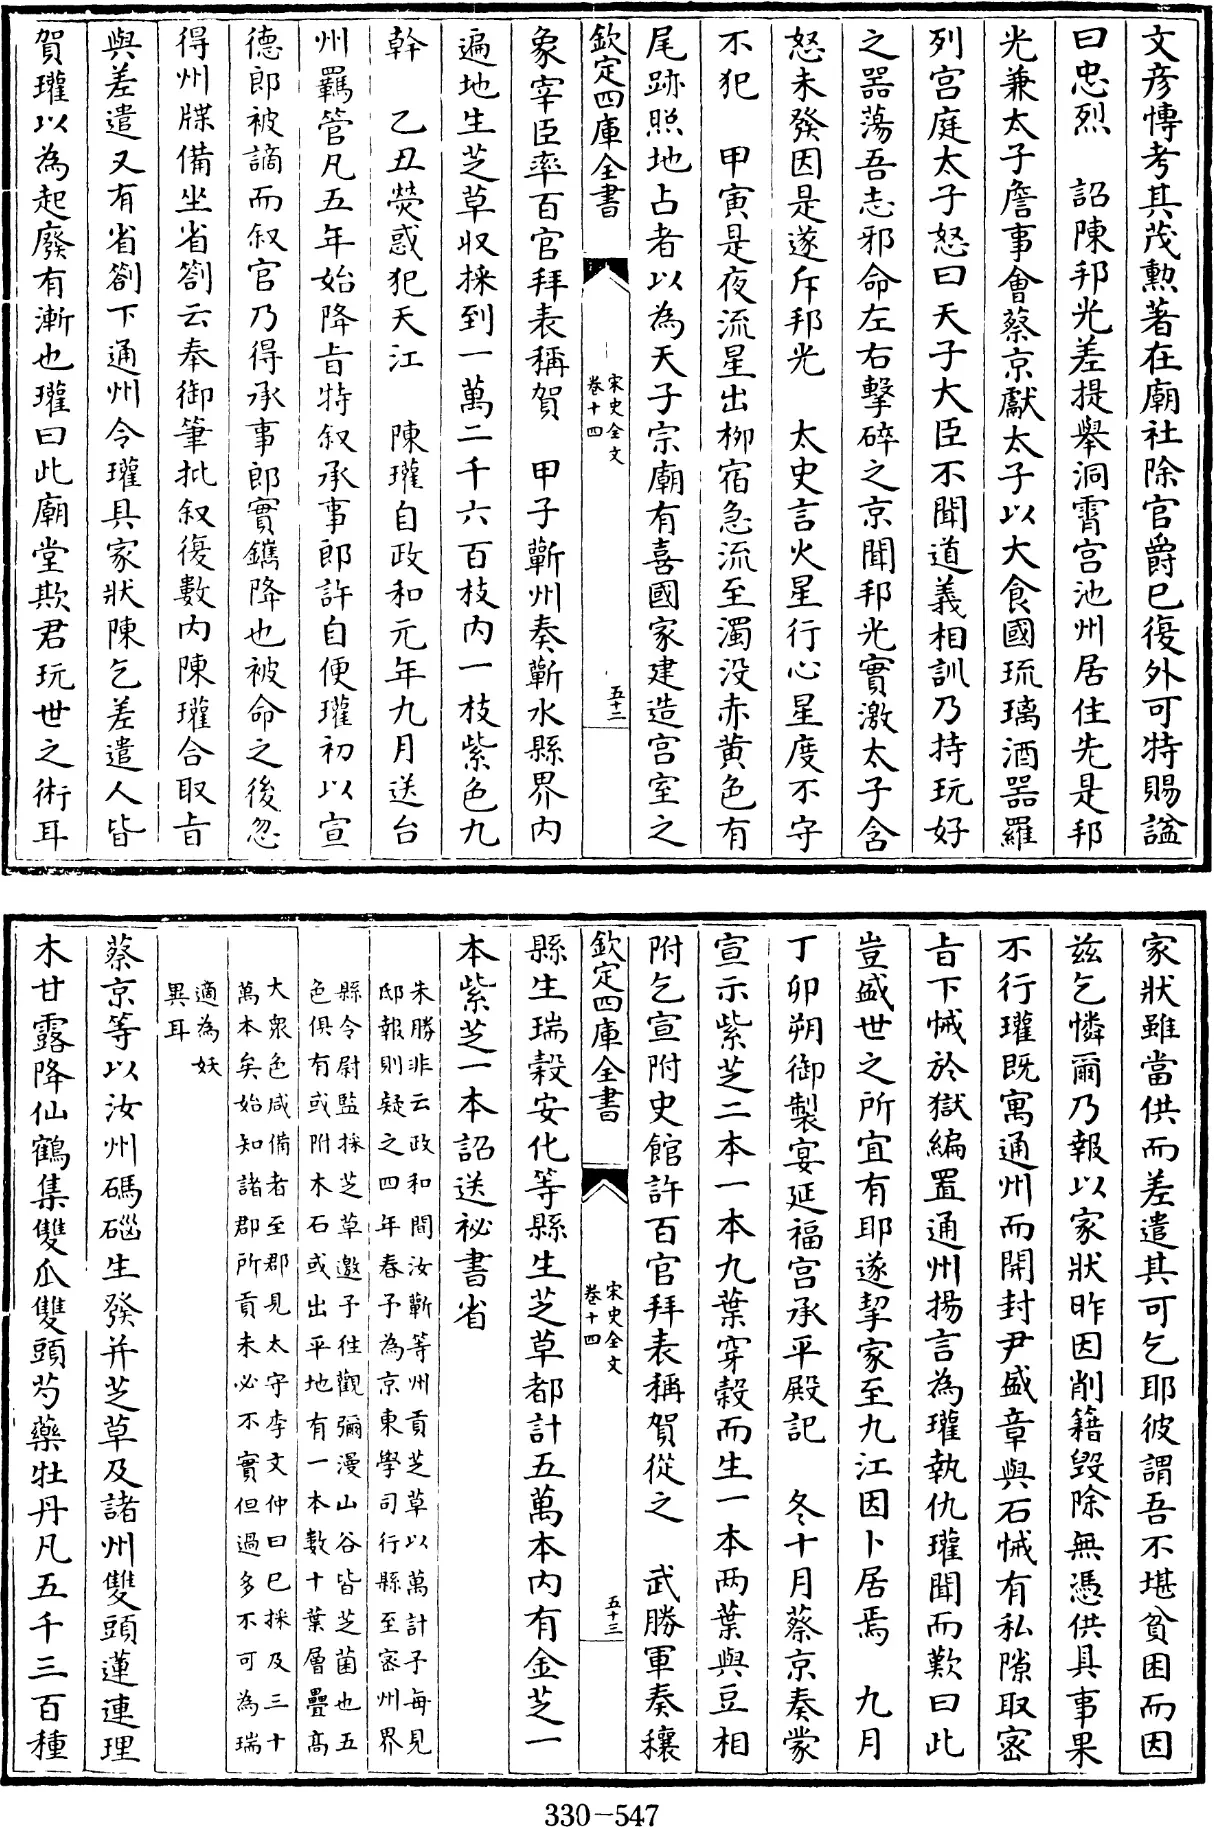 文彦博考其茂勲著在廟社除官爵已復外可特賜諡
曰忠烈　詔陳邦光差提舉洞霄宫池州居住先是邦
光兼太子詹事會蔡京獻太子以大食國琉璃酒器羅
列宫庭太子怒曰天子大臣不聞道義相訓乃持玩好
之器蕩吾志邪命左右擊碎之京聞邦光實激太子含
怒未發因是遂斥邦光　太史言火星行心星度不守
不犯　甲寅是夜流星出柳宿急流至濁没赤黄色有
尾跡照地占者以為天子宗廟有喜國家建造宫室之
欽定四庫全書
宋史全文
卷十四
五十二
象宰臣率百官拜表稱賀　甲子蘄州奏蘄水縣界内
遍地生芝草收採到一萬二千六百枝内一枝紫色九
幹　乙丑熒惑犯天江　陳瓘自政和元年九月送台
州羈管凡五年始降㫖特叙承事郎許自便瓘初以宣
德郎被謫而叙官乃得承事郎實鐫降也被命之後忽
得州牒備坐省劄云奉御筆批叙復數内陳瓘合取㫖
與差遣又有省劄下通州令瓘具家狀陳乞差遣人皆
賀瓘以為起廢有漸也瓘曰此廟堂欺君玩世之術耳
家狀雖當供而差遣其可乞耶彼謂吾不堪貧困而因
兹乞憐爾乃報以家狀昨因削籍毁除無憑供具事果
不行瓘既寓通州而開封尹盛章與石悈有私隙取宻
㫖下悈於獄編置通州揚言為瓘執仇瓘聞而歎曰此
豈盛世之所宜有耶遂挈家至九江因卜居焉　九月
丁卯朔御製宴延福宫承平殿記　冬十月蔡京奏蒙
宣示紫芝二本一本九葉穿穀而生一本两葉與豆相
附乞宣附史館許百官拜表稱賀從之　武勝軍奏穰
欽定四庫全書
宋史全文
卷十四
五十三
縣生瑞穀安化等縣生芝草都計五萬本内有金芝一
本紫芝一本詔送祕書省
朱勝非云政和間汝蘄等州貢芝草以萬計子每見
邸報則疑之四年春予為京東學司行縣至宻州界
縣令尉監採芝草邀子往觀彌漫山谷皆芝菌也五
色俱有或附木石或出平地有一本數十葉層疊髙
大衆色咸備者至郡見太守李文仲曰已採及三十
萬本矣始知諸郡所貢未必不實但過多不可為瑞
適為妖
異耳
蔡京等以汝州碼碯生發并芝草及諸州雙頭蓮連理
木甘露降仙鶴集雙瓜雙頭芍藥牡丹凡五千三百種
330-547